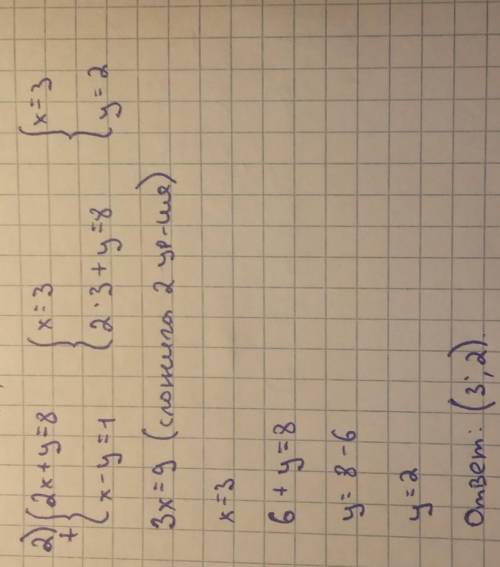 2) { 2x+y=8 { x=3 { x=3
+ { x-y=1 { 2·3+y=8 { y=2
3x=9 (сложила 2 ур-ия)
x=3
6+y=8
y=8-6
y=2
Ответ: (3; 2).